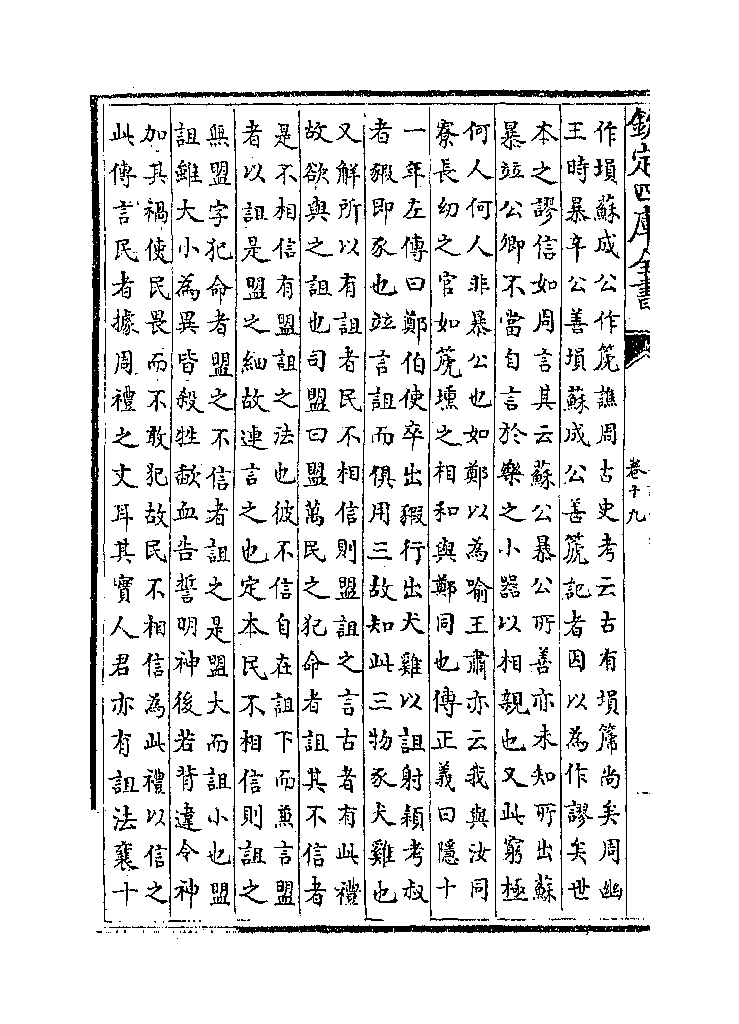 欽定四庫全書
卷十九
作塤蘇成公作箎譙周古史考云古有塤篪尚矣周幽
王時暴辛公善塤蘇成公善箎記者因以為作謬矣世
本之謬信如周言其云蘇公暴公所善亦未知所出蘇
暴竝公卿不當自言於樂之小器以相親也又此窮極
何人何人非暴公也如鄭以為喻王肅亦云我與汝同
寮長幼之官如箎壎之相和與鄭同也傳正義曰隱十
一年左傳曰鄭伯使卒出豭行出犬雞以詛射穎考叔
者豭即豕也竝言詛而俱用三故知此三物豕犬雞也
又解所以有詛者民不相信則盟詛之言古者有此禮
故欲與之詛也司盟曰盟萬民之犯命者詛其不信者
是不相信有盟詛之法也彼不信自在詛下而兼言盟
者以詛是盟之細故連言之也定本民不相信則詛之
無盟字犯命者盟之不信者詛之是盟大而詛小也盟
詛雖大小為異皆殺牲歃血告誓明神後若背違令神
加其禍使民畏而不敢犯故民不相信為此禮以信之
此傳言民者據周禮之文耳其實人君亦有詛法襄十